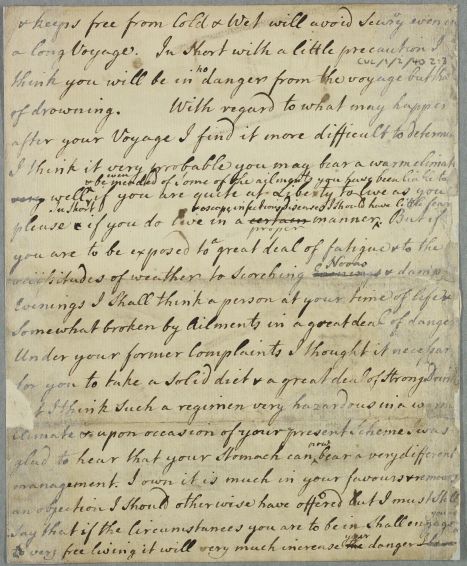 & keeps free from Cold & Wet will avoid Scurvy even in
a long Voyage. In Short with a little precaution I
think you will be in no danger from the voyage but that
of drowning. With regard to what may happen
after your Voyage I find it more difficult to determine
I think it very probable you may bear a warm climate
& be even mended of some of the ailments you have been liable to
very well, if you are quite at Liberty to live as you
in Short, infectious diseases I should have little fear
please & if you do live in a certain proper manner. But if
you are to be exposed to a great deal of fatigue & to the
vicissitudes of weather to Scorching Noons & damp
Evenings I Shall think a person at your time of life &
Somewhat broken by Ailments in a great deal of danger
Under your former Complaints I thought it necessary
for you to take a Solid diet & a great deal of Strong Drink
but I think Such a regimen very hazardous in a warm
climate & upon occasion of your present Scheme I was
glad to hear that your Stomach can now bear a very different
management. I own it is much in your favours & removes
an objection I Should otherwise have offered but I must Still
Say that if the Circumstances you are to be in Shall engage you
to very free living it will very much increase the your danger